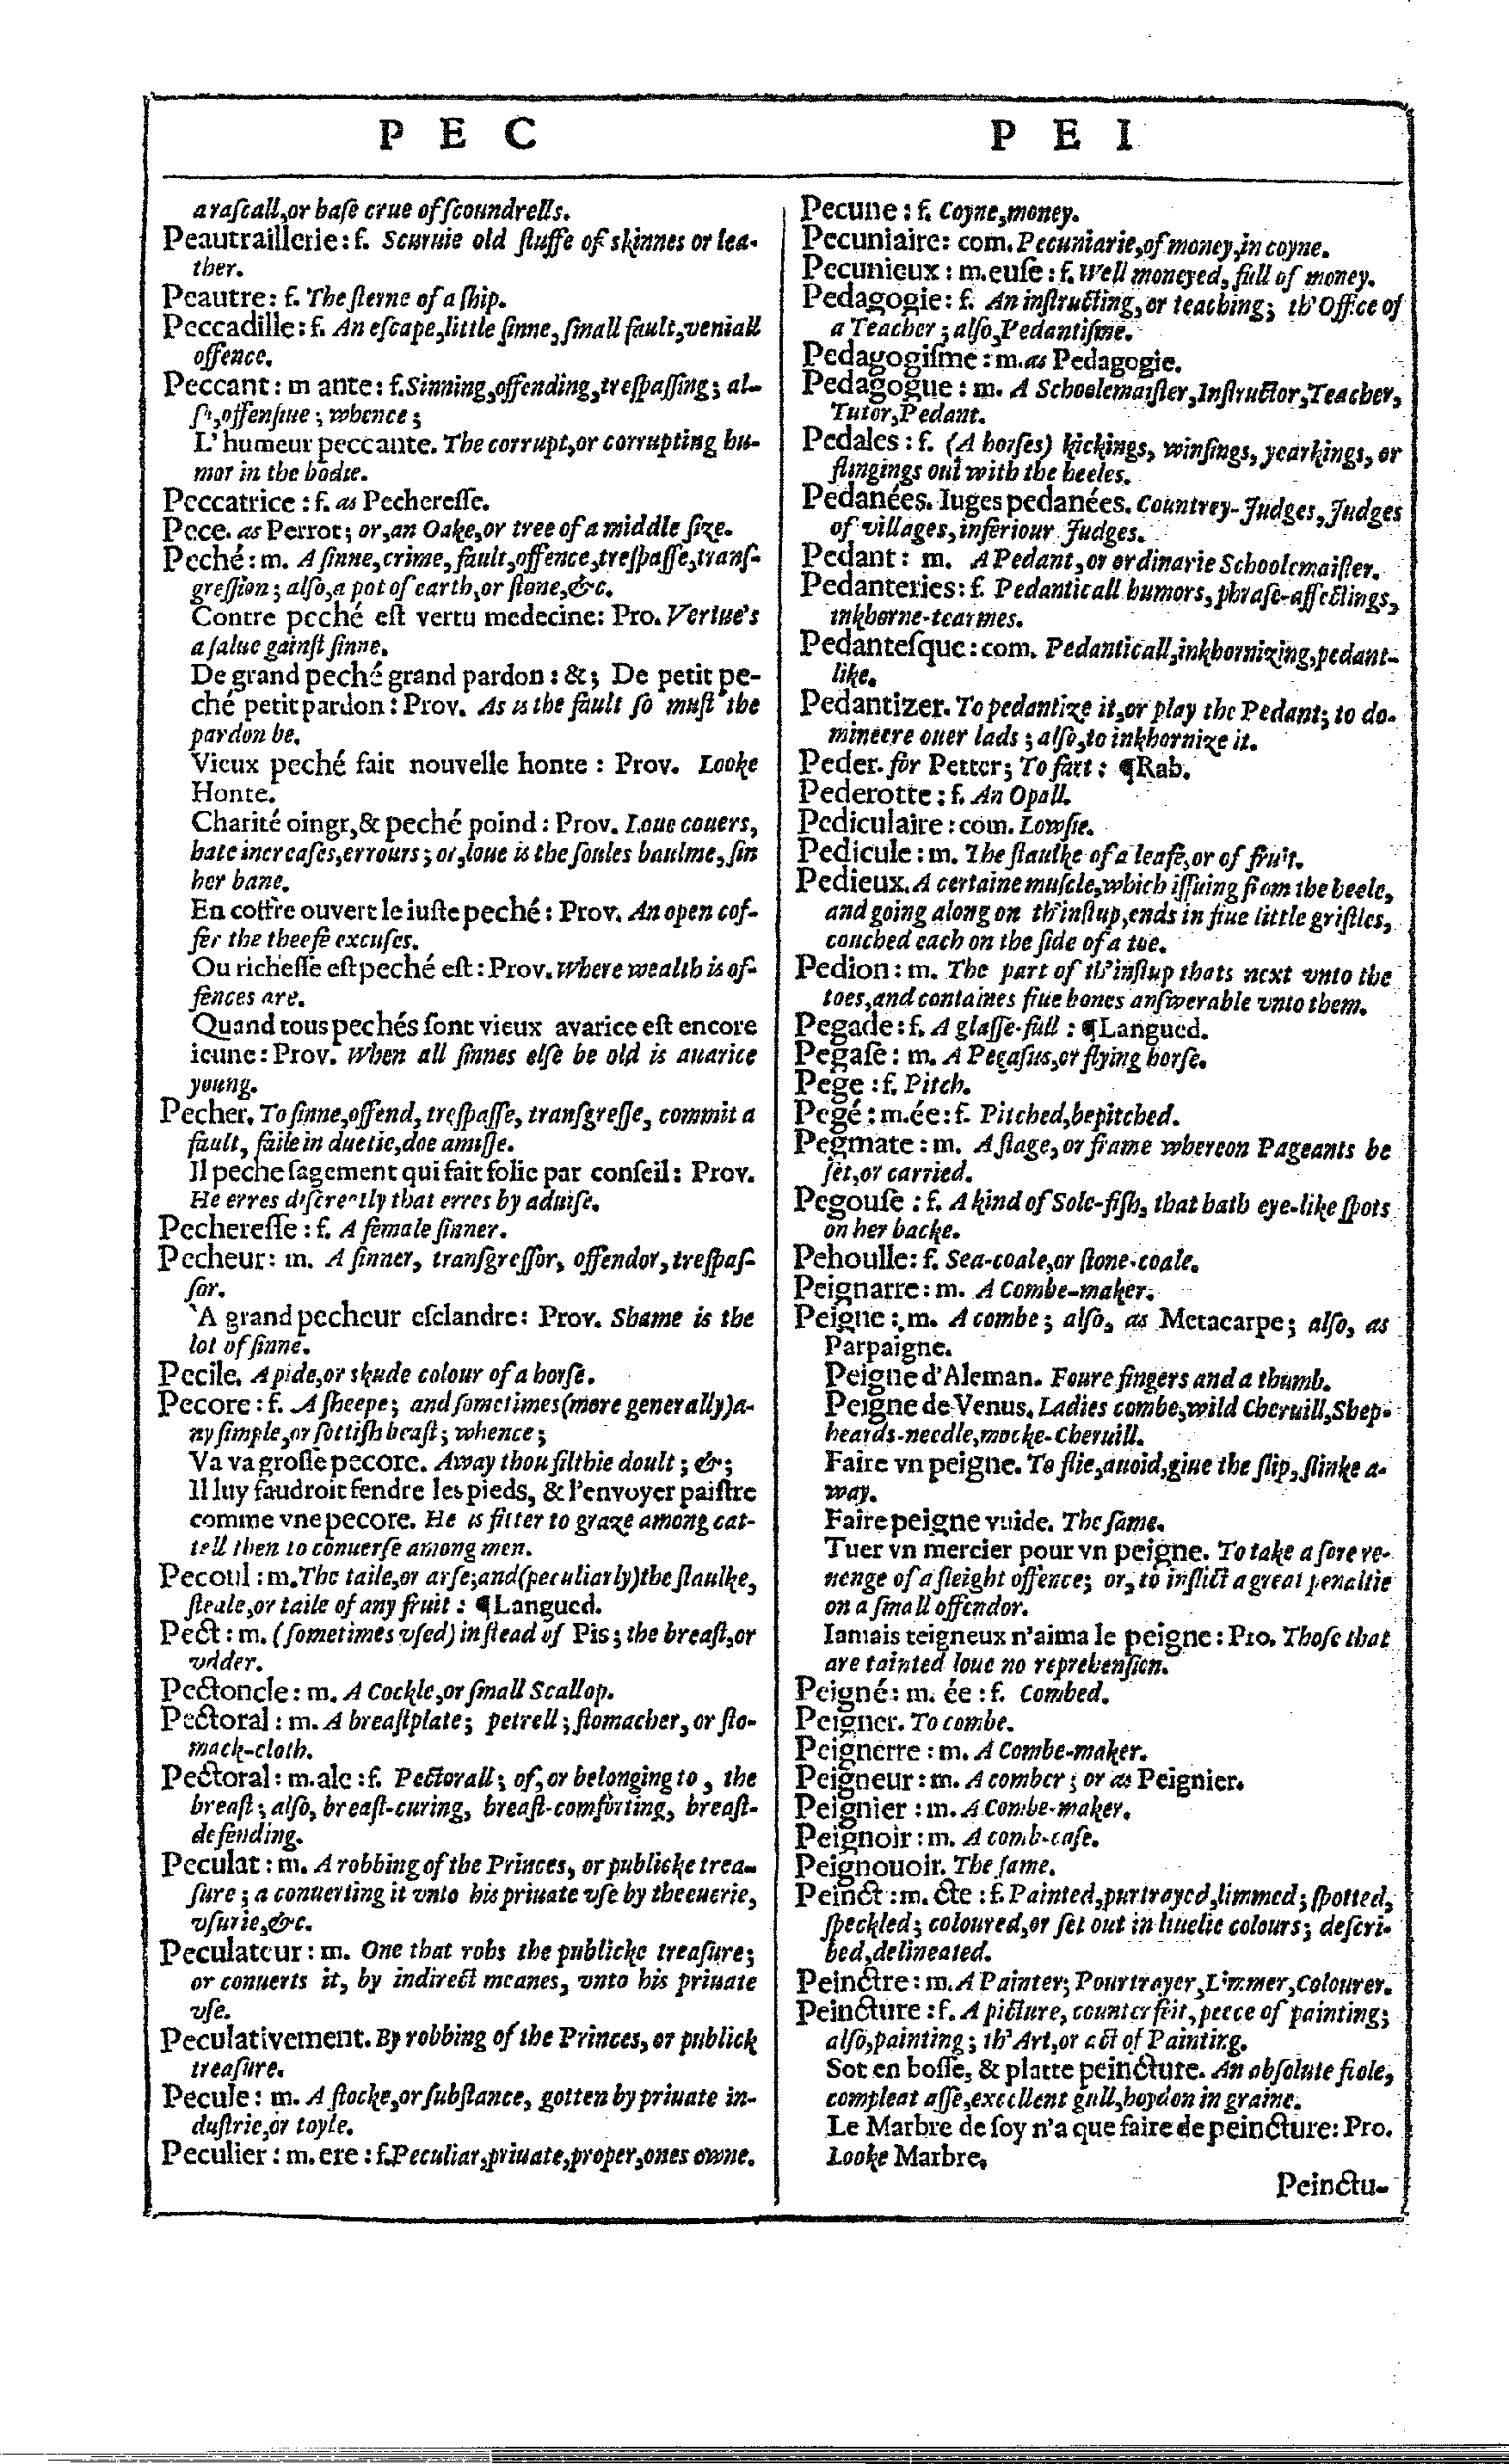 P E C
a raſcall,or baſe crue of ſcoundrells.
Peautraillerie: f. Scuruie old ſtuffe of skinnes or lea-
ther.
Peautre: f. The ſterne of a ſhip.
Peccadille: f. An eſcape,little ſinne,ſmall fault,veniall
offence.
Peccant: m ante: f.Sinning,offending,treſpaſſing; al-
ſo,offenſiue; whence;
L'humeur peccante. The corrupt,or corrupting hu-
mor in the bodie.
Peccatrice: f. as Pechereſſe.
Pece. as Perrot; or,an Oake,or tree of a middle ſize.
Peché: m. A ſinne,crime,fault,offence,treſpaſſe,tranſ-
greſſion; alſo,a pot of earth,or ſtone,&c.
Contre peché eſt vertu medecine: Pro. Vertue's
a ſalue gainſt ſinne.
De grand peché grand pardon: &; De petit pe-
ché petit pardon: Prov. As is the fault ſo muſt the
pardon be.
Vieux peché fait nouvelle honte: Prov. Looke
Honte.
Charité oingt,& peché poind: Prov. Loue couers,
hate increaſes,errours; or,loue is the ſoules baulme,ſin
her bane.
En coffre ouvert le iuſte peché: Prov. An open cof-
fer the theefe excuſes.
Ou richeſſe eſt peché eſt: Prov. Where wealth is of-
fences are.
Quand tous pechés ſont vieux avarice eſt encore
ieune: Prov. When all ſinnes elſe be old is auarice
young.
Pecher. To ſinne,offend, treſpaſſe, tranſgreſſe, commit a
fault, faile in duetie,doe amiſſe.
Il peche ſagement qui fait folie par conſeil: Prov.
He erres diſcreetly that erres by aduiſe.
Pechereſſe: f. A female ſinner.
Pecheur: m. A ſinner, tranſgreſſor, offendor, treſpaſ-
ſor.
'A grand pecheur eſclandre: Prov. Shame is the
lot of ſinne.
Pecile. A pide,or skude colour of a horſe.
Pecore: f. A ſheepe; and ſometimes(more generally)a-
ny ſimple,or ſottiſh beaſt; whence;
Va va groſſe pecore. Away thou filthie doult; &;
Il luy faudroit fendre les pieds, & l'envoyer paiſtre
comme vne pecore. He is fitter to graze among cat-
tell then to conuerſe among men.
Pecoul: m.The taile,or arſe;and(peculiarly)the ſtaulke,
ſteale,or taile of any fruit: ¶Langued.
Pect: m. (ſometimes vſed) inſtead of Pis; the breaſt,or
vdder.
Pectoncle: m. A Cockle,or ſmall Scallop.
Pectoral: m. A breaſtplate; petrell; ſtomacher, or ſto-
mack-cloth.
Pectoral: m.ale: f. Pectorall; of, or belonging to, the
breaſt; alſo, breaſt-curing, breaſt-comforting, breaſt-
defending.
Peculat: m. A robbing of the Princes, or publicke trea-
ſure; a conuerting it vnto his priuate vſe by theeuerie,
vſurie,&c.
Peculateur: m. One that robs the publicke treaſure;
or conuerts it, by indirect meanes, vnto his priuate
vſe.
Peculativement. By robbing of the Princes, or publick
treaſure.
Pecule: m. A ſtocke,or ſubſtance, gotten by priuate in-
duſtrie,or toyle.
Peculier: m. ere: f.Peculiar,priuate,proper,ones owne.
P E I
Pecune: f. Coyne,money.
Pecuniaire: com. Pecuniarie,of money,in coyne.
Pecunieux: m.euſe: f. Well moneyed, full of money.
Pedagogie: f. An inſtructing, or teaching; th'Office of
a Teacher; alſo,Pedantiſme.
Pedagogiſme: m.as Pedagogie.
Pedagogue: m. A Schoolemaiſter,Inſtructor,Teacher,
Tutor,Pedant.
Pedales: f. (A horſes) kickings, winſings, yearkings, or
flingings out with the heeles.
Pedanées. Iuges pedanées. Countrey-Judges, Judges
of villages, inferiour Judges.
Pedant: m. A Pedant, or ordinarie Schoolemaiſter.
Pedanteries: f. Pedanticall humors, phraſe-affectings,
inkhorne-tearmes.
Pedanteſque: com. Pedanticall,inkhornizing,pedant-
like.
Pedantizer. To pedantize it,or play the Pedant; to do-
mineere ouer lads; alſo,to inkhornize it.
Peder. for Petter; To fart: ¶Rab.
Pederotte: f. An Opall.
Pediculaire: com. Lowſie.
Pedicule: m. The ſtaulke of a leafe,or of fruit.
Pedieux. A certaine muſcle,which iſſuing from the heele,
and going along on th'inſtup,ends in fiue little griſtles,
couched each on the ſide of a toe.
Pedion: m. The part of th'inſtup thats next vnto the
toes,and containes fiue bones anſwerable vnto them.
Pegade: f. A glaſſe-full: ¶Langued.
Pegaſe: m. A Pegaſus,or flying horſe.
Pege: f. Pitch.
Pegé: m.ée: f. Pitched,bepitched.
Pegmate: m. A ſtage, or frame whereon Pageants be
ſet,or carried.
Pegouſe: f. A kind of Sole-fiſh, that hath eye-like ſpots
on her backe.
Pehoulle: f. Sea-coale,or ſtone-coale.
Peignarre: m. A Combe-maker.
Peigne: m. A combe; alſo, as Metacarpe; alſo, as
Parpaigne.
Peigne d'Aleman. Foure fingers and a thumb.
Peigne de Venus. Ladies combe,wild Cheruill,Shep-
heards-needle,mocke-Cheruill.
Faire vn peigne. To flie,auoid,giue the ſlip, ſlinke a-
way.
Faire peigne vuide. The ſame.
Tuer vn mercier pour vn peigne. To take a ſore re-
uenge of a ſleight offence; or, to inflict a great penaltie
on a ſmall offendor.
Iamais teigneux n'aima le peigne: Pro. Thoſe that
are tainted loue no reprehenſion.
Peigné: m. ée: f. Combed.
Peigner. To combe.
Peignerre: m. A Combe-maker.
Peigneur: m. A comber; or as Peignier.
Peignier: m. A Combe-maker.
Peignoir: m. A comb-caſe.
Peignouoir. The ſame.
Peinct: m. cte: f. Painted,purtrayed,limmed; ſpotted,
ſpeckled; coloured,or ſet out in liuelie colours; deſcri-
bed,delineated.
Peinctre: m.A Painter; Pourtrayer,Limmer,Colourer.
Peincture: f. A picture, counterfeit, peece of painting;
alſo,painting; th'Art,or act of Painting.
Sot en boſſe, & platte peincture. An abſolute fiole,
compleat aſſe,excellent gull,hoydon in graine.
Le Marbre de ſoy n'a que faire de peincture: Pro.
Looke Marbre.
Peinctu-